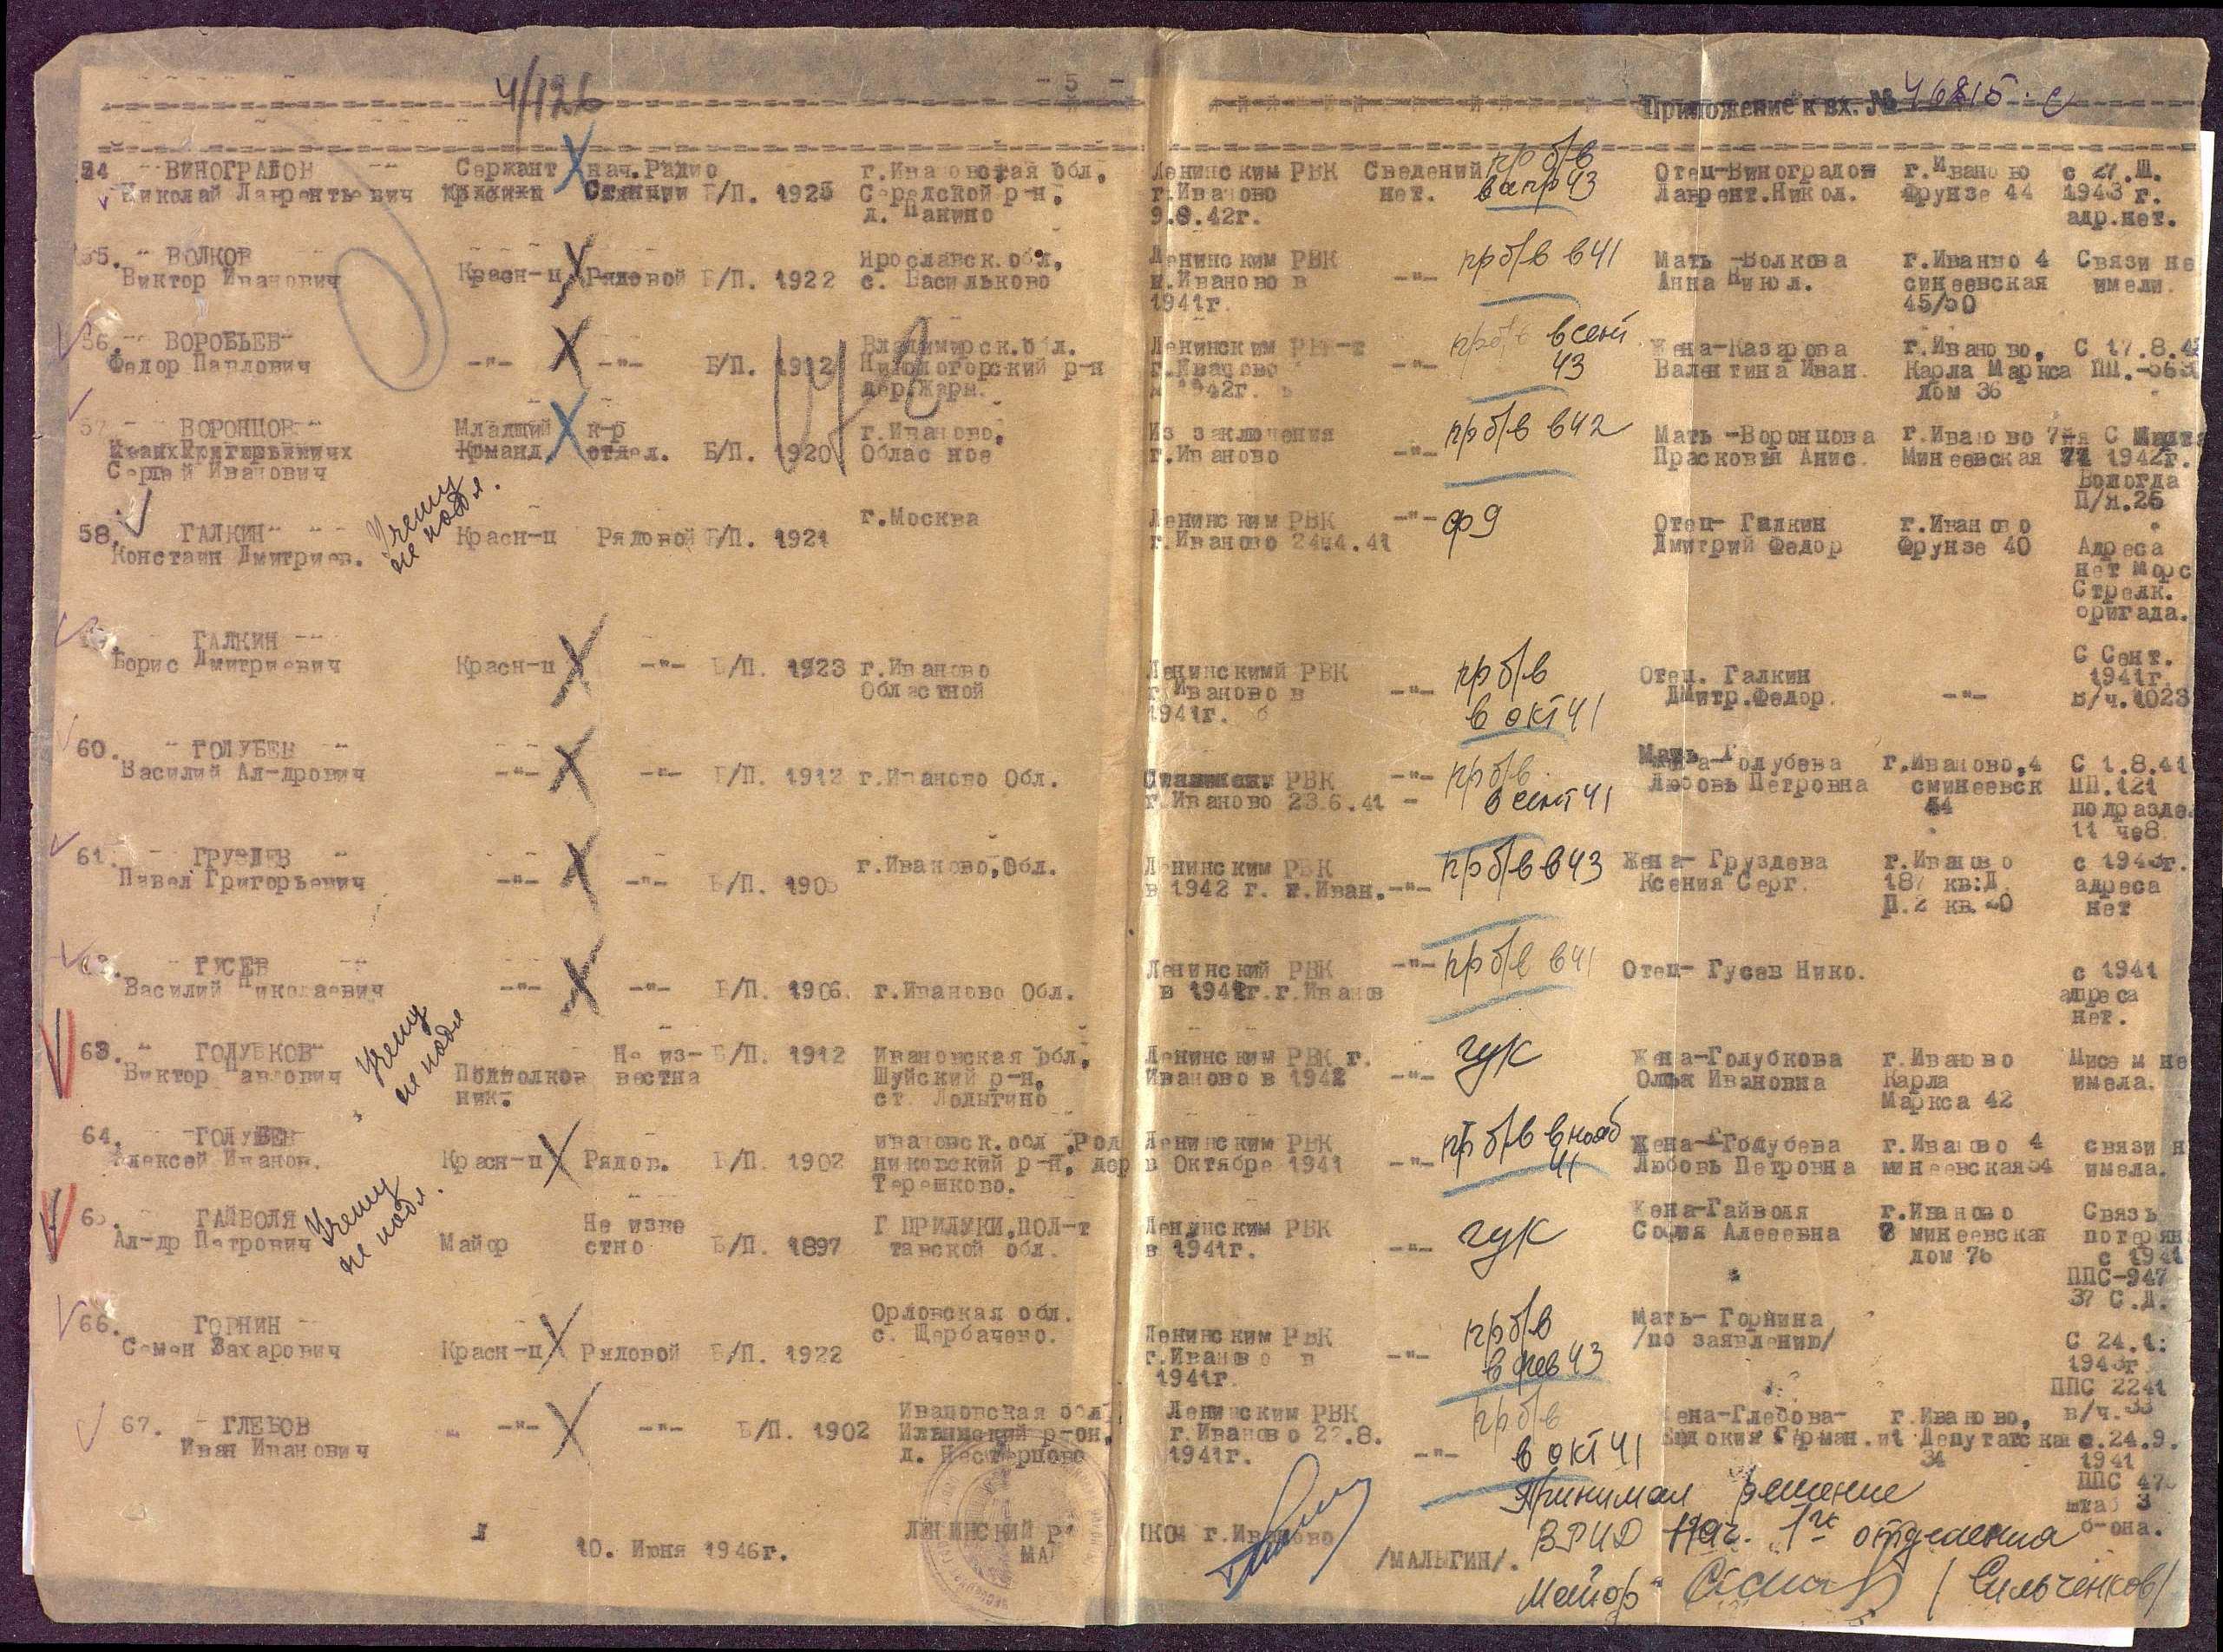 4/126
- 5 -
Приложение к вх. № 46815 с
54 - ВИНОГРАДОВ
Николай Лаврентьевич
Сержант нач.Радио Станции Б/П. 1925
г.Ивановская обл, Середской р-н, д. Панино
Ленинским РВК г.Иваново 9.8.42г.
Сведений нет.
пр б/в в апр 43
Отец-Виноградов Лаврент.Никол.
г.Иваново Фрунзе 44
с 27.Ш. 1943 г. адр.нет.
55. - ВОЛКОВ
Виктор Иванович
Красн-ц Рядовой Б/П. 1922
Ярославск.обл, с. Васильково
Ленинским РВК г.Иваново в 1941г.
-"- пр б/в в 41
Мать -Волкова Анна Никол.
г.Иванво 4 синеевская 45/50
Связи не имели.
56. - ВОРОБЬЕВ
Федор Павлович
-"- -"- Б/П. 1912
Владимирск.обл. Никологорский р-н дер.Жары.
Ленинским г.Иваново 42г.
-"- пр б/в в сент 43
Жена-Казарова Валентина Иван.
г.Иваново, Карла Маркса дом 36
С 17.8. ПП.
57 - ВОРОНЦОВ
Сергей Иванович
Младший Команд. к-р отдел. Б/П. 1920
г.Иваново, Областное
Из заключения г.Иваново
-"- пр б/в в 42
Мать -Воронцова Прасковья Анис.
г.Иваново 7-я Минеевская 71
С 1942г. Вологда П/я.25
58. ГАЛКИН
Констаин Дмитриев.
Учету не подл.
Красн-ц Рядовой Б/П. 1921
г.Москва
Ленинским РВК г.Иваново 24.4.41
-"- ф 9
Отец- Галкин Дмитрий Федор
г.Иваново Фрунзе 40
Адреса нет морс Стрелк. бригада.
ГАЛКИН
Борис Дмитриевич
Красн-ц -"- Б/П. 1923
г.Иваново Областной
Ленинскимй РВК г.Иваново в 1941г.
-"- пр б/в в окт 41
Отец. Галкин Дмитр.Федор.
-"-
С Сент. 1941г. В/ч.1023
60. - ГОЛУБЕВ
Василий Ал-дрович
-"- -"- Б/П. 1912 г.Иваново Обл.
РВК г.Иваново 23.6.41 -
-"- пр б/в. в сент 41
Мать Голубева Любовь Петровна
г.Иваново,4 сминеевск 54
С 1.8.41 ПП.121 подразде. 11 че8.
61. - ГРУЗДЕВ
Павел Григорьевич
-"- -"- Б/П. 190
г.Иваново,Обл.
Ленинским РВК в 1942 г. г.Иван.
-"- пр б/в в 43
Жена- Груздева Ксения Серг.
г.Иваново 187 кв:Д. П.2 кв.
с 1943г. адреса нет
ГУСЕВ
Василий Николаевич
-"- -"- Б/П. 1906. г.Иваново Обл.
Ленинский РВК в 1941г.г.Иванов
-"- пр б/в в 41
Отец- Гусев Нико.
с 1941 адреса нет.
63. - ГОЛУБКОВ
Виктор Павлович
Учету не подл
Подполков ник. Не из- вестна Б/П. 1912
Ивановская обл, Шуйский р-н, ст. Лопытино
Ленинским РВК г. Иваново в 1942
-"- ГУК
Жена-Голубкова Ольга Ивановна
г.Иваново Карла Маркса 42
Писем не имела.
64. -ГОЛУБЕВ
Алексей Иванов.
Красн-ц Рядов. Б/П. 1902
ивановск.обл ,Род никовский р-н, дер Терешково.
Ленинским РВК в Октябре 1941
-"- пр б/в в нояб 41
Жена-Голубева Любовь Петровна
г.Иваново 4 минеевская54
связи н имела.
65. - ГАЙВОЛЯ
Ал-др Петрович
Учету не подл.
Майор Не изве стно Б/П. 1897
Г ПРИЛУКИ,ПОЛ-т тавской обл.
Ленинским РВК в 1941г.
-"- ГУК
Жена-Гайволя София Алееевна
г.Иваново 3 минеевская дом 76
Связь потерян с 1941 ППС-947 37 С.Д.
66. ГОРНИН
Семен Захарович
Красн-ц Рядовой Б/П. 1922
Орловская обл. с. Щербачево.
Ленинским РВК г.Иваново в 1941г
-"- пр б/в в фев 43
Мать- Горнина /по заявлению/
С 24.1: 1943г ППС 2241
67. - ГЛЕБОВ
Иван Иванович
-"- -"- Б/П. 1902
Ивановская обл, р-он, д.
Ленинским РВК г.Иваново 22.8. 1941г.
-"- пр б/в в окт 41
Жена-Глебова- Евдокия Герман.
г.Иваново, Депутатска 34
в/ч.33 с.24.9. 1941 ППС 47 штаб 3 б-она.
10. Июня 1946г.
ЛЕНИНСКИЙ Р
г.Иваново
/МАЛЫГИН/.
Принимал решение
ВРИД Нач. 1го отделения
Майор / Сильченков/